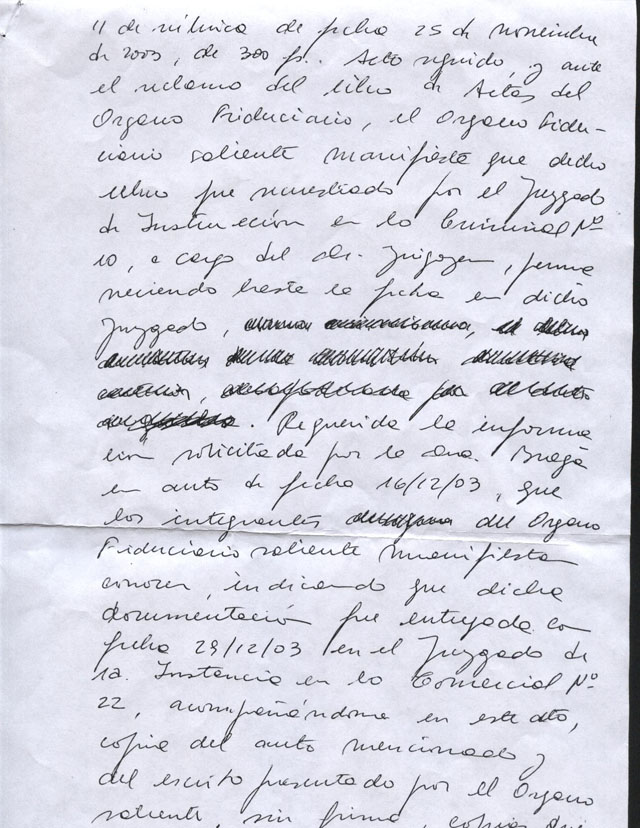 11 de rúbrica de fecha 25 de Noviembre
de 2003, de 300 fs.. Acto seguido, y ante
el reclamo del libro de Actas del
Organo Fiduciario, el Organo Fidu-
ciario saliente manifiesta que dicho
libro fue secuestrado por el Juzgado
de Instrucción en lo Criminal Nº
10, a cargo del dr. Yrigoyen, perma
neciendo hasta la fecha en dicho
Juzgado,
. Requerida la informa
ción solicitada por la dra. Braga
en auto de fecha 16/12/03, que
los integrantes del Organo
Fiduciario saliente manifiestan
conocer, indicando que dicha
documentación fue entregada con
fecha 29/12/03 en el Juzgado de
1a. Instancia en lo Comercial Nº
22, acompañándome en este acto,
copia del auto mencionado y
del escrito presentado por el Organo
saliente, sin firma, copias